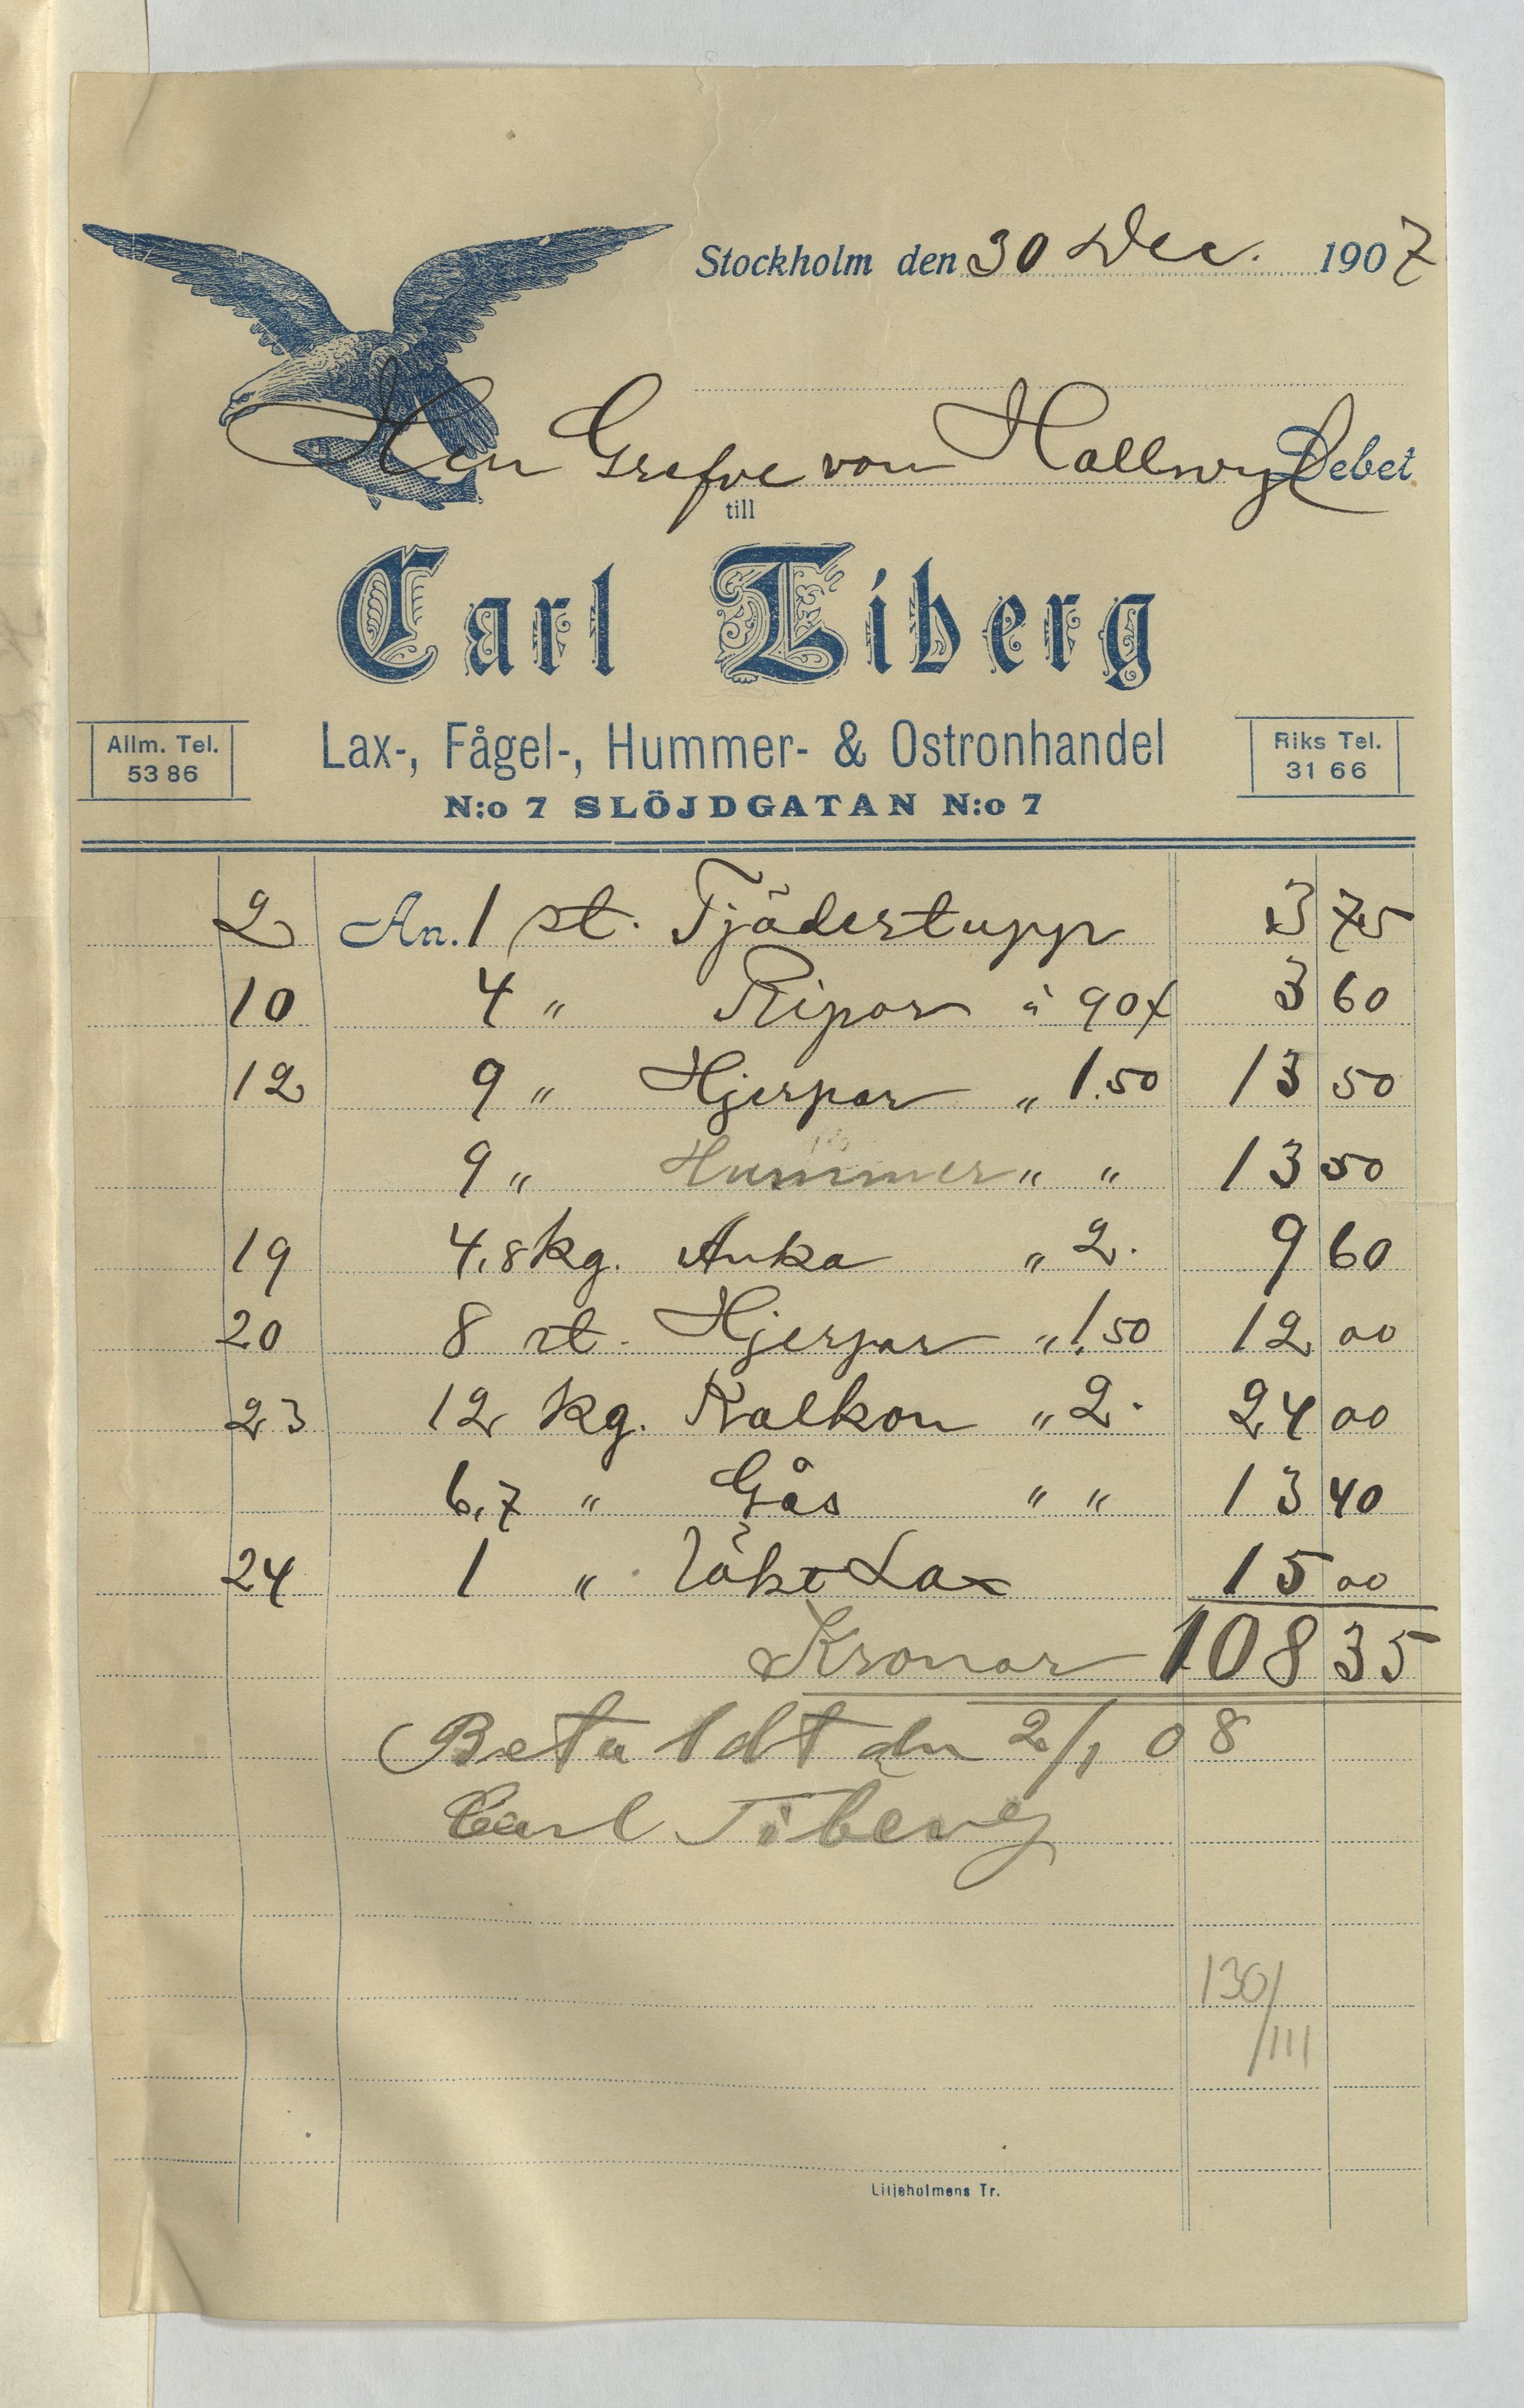 Stockholm den 30 Dec. 1907
Herr Grefve von Hallwyl Debet
till
Carl Tiberg
Allm. Tel. 53 86
Lax-, Fågel-, Hummer- & Ostronhandel
Riks Tel. 31 66
N:o 7 SLÖJDGATAN N:o 7
2 An. 1 st. Tjäderstupp 3 75
10 4 " Ripor à 90 3 60
12 9 " Hjerpar " 1.50 13 50
9 " Hummer " " 13 50
19 4,8 kg. Anka " 2. 9 60
20 8 st. Hjerpar " 1.50 12 00
23 12 kg. Kalkon " 2. 24 00
6,7 " Gås " " 13 40
24 1 " Rökt Lax 15 00
Kronor 108 35
Betaldt den 2/1 08
Carl Tiberg
130/
/111
Liljeholmens Tr.